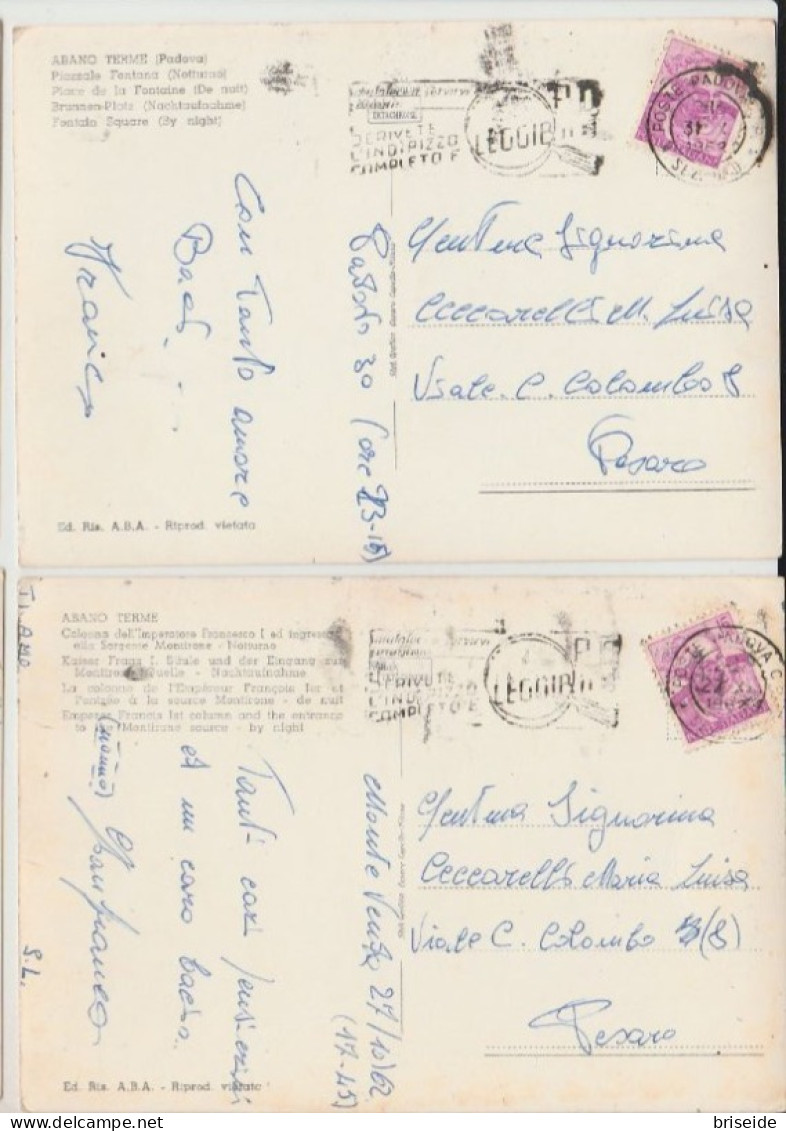 ABANO TERME (Padova)
Piazzale Fontana (Notturno)
Place de la Fontaine (De nuit)
Brunnen-Platz (Nachtaufnahme)
Fontain Square (By night)
SCRIVETE
L'INDIRIZZO
COMPLETO E
LEGGIBILE
POSTE PADOVA
Con tanto amore
Baci.
Franco
Padova 30 (ore 23-15)
Gentma Signorina
Ceccarelli M. Luisa
Viale C. Colombo 8
Pesaro
Ed. Ris. A.B.A. - Riprod. vietata
TI AMO
ABANO TERME
Colonna dell'Imperatore Francesco I ed ingresso
alla Sorgente Montirone - Notturno
Kaiser Franz I. Säule und der Eingang zur
Montirone Quelle - Nachtaufnahme
La colonne de l'Empéreur François Ier et
l'entrée à la source Montirone - de nuit
Emperor Francis Ist column and the entrance
to the Montirone source - by night
SCRIVETE
L'INDIRIZZO
COMPLETO E
LEGGIBILE
POSTE PADOVA C
27
Tanti cari pensierini
et un caro bacino.
Gianfranco
S.L.
Monte Venda 27/10/62
(17-45)
Gentma Signorina
Ceccarelli Maria Luisa
Viale C. Colombo (8)
Pesaro
Ed. Ris. A.B.A. - Riprod. vietata
briseide